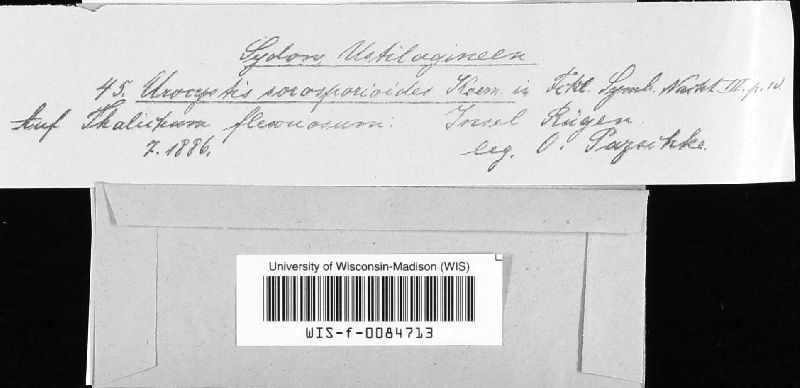 Sydow, Ustilagineen
45. Urocystis sorosporioides Koern in Fckl. Symb. Nacht. III. p. 10.
Auf Thalictrum flexuosum. Insel Rügen.
7. 1886. leg. O. Pazschke.
University of Wisconsin-Madison (WIS)
WIS-f-0084713